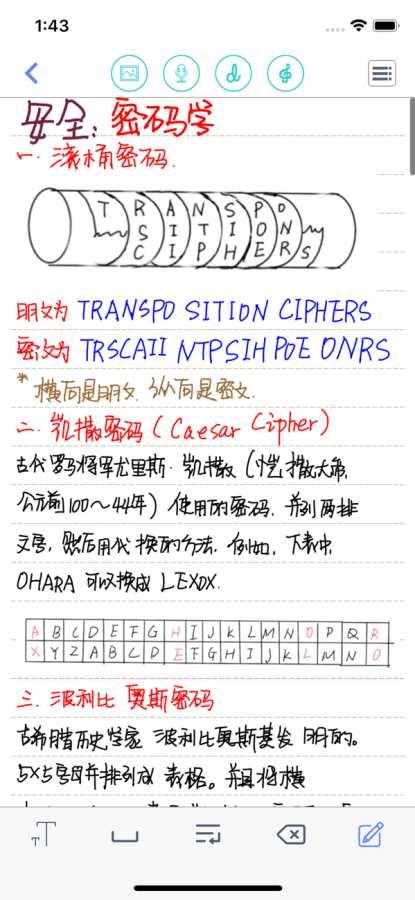 1:43
安全：密码学
一. 滚桶密码.
T R A N S P O
S I T I O N
C I P H E R S
明文为 TRANSPO SITION CIPHERS
密文为 TRSCAII NTPSIHPOE ONRS
*横向是明文. 纵向是密文.
二. 凯撒密码 (Caesar Cipher)
古代罗马将军尤里斯·凯撒 (恺撒大帝,
公元前100～44年) 使用的密码. 并列两排
文字, 然后用代换的方法. 例如, 下表中,
OHARA 可以换成 LEXOX.
A B C D E F G H I J K L M N O P Q R
X Y Z A B C D E F G H I J K L M N O
三. 波利比奥斯密码
古希腊历史学家 波利比奥斯发明的。
5×5字母排列成 表格。并且将横